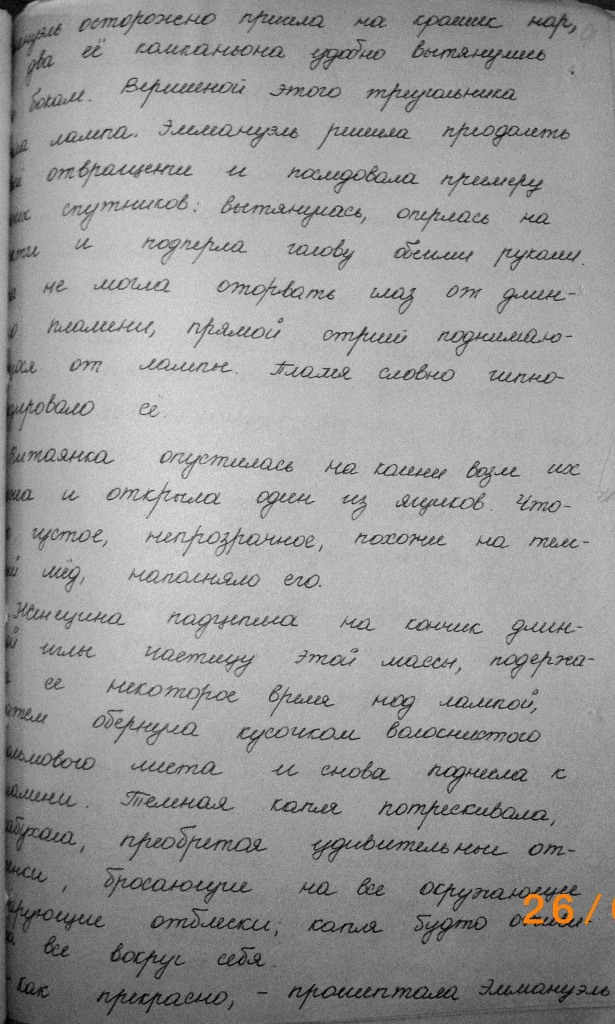 осторожно присела на краешек нар,
два её компаньона удобно вытянулись
бокам. Вершиной этого треугольника
лампа. Эммануэль решила преодолеть
отвращение и последовала примеру
спутников: вытянулась, оперлась на
и подперла голову обеими руками.
не могла оторвать глаз от длин-
пламени, прямой струей поднимаю-
от лампы. Пламя словно гипно-
ее.
Китаянка опустилась на колени возле их
и открыла один из ящиков. Что-
густое, непрозрачное, похожее на тем-
мёд, наполняло его.
Женщина подцепила на кончик длин-
иглы частицу этой массы, подержа-
ее некоторое время над лампой,
обернула кусочком волокнистого
листа и снова поднесла к
Темная капля потрескивала,
приобретая удивительные от-
бросающие на все окружающее
отблески; капля будто
все вокруг себя.
- как прекрасно, - прошептала Эммануэль
26/